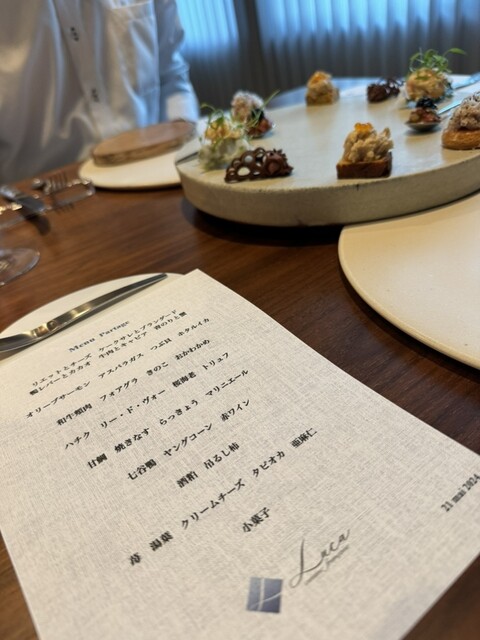 Menu Partage
リエットとチーズ ケークサレとブランダード
鴨レバーとカカオ 牛肉とキャビア 春のりと蟹
オリーブサーモン アスパラガス つぶ貝 ホタルイカ
和牛頬肉 フォアグラ きのこ おかわかめ
ハチク リー・ド・ヴォー 桜海老 トリュフ
甘鯛 焼きなす らっきょう マリニエール
七谷鴨 ヤングコーン 赤ワイン
酒粕 吊るし柿
苺 湯葉 クリームチーズ タピオカ 亜麻仁
小菓子
21 mai 2024
Luca